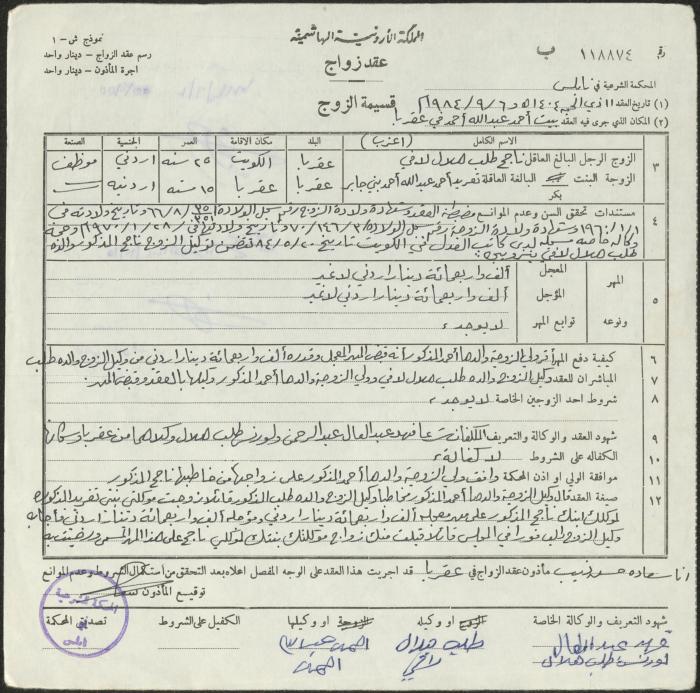 المملكة الأردنية الهاشمية
نموذج ش - ١
رسم عقد الزواج - دينار واحد
اجرة المأذون - دينار واحد
عقد زواج
رقم ١١٨٨٧٤ ب
المحكمة الشرعية في نابلس
(١) تاريخ العقد ١١ ذي الحجة ١٤٠٤هـ و ٦/٩/١٩٨٤م
قسيمة الزوج
(٢) المكان الذي جرى فيه العقد بيت أحمد عبدالله أحمد في عقربا
الاسم الكامل (أعزب) البلد مكان الاقامة العمر الجنسية الصنعة
٣ الزوج الرجل البالغ العاقل ناجح طلب هلال لافي عقربا الكويت ٢٥ سنة اردني موظف
الزوجة البنت البالغة العاقلة تغريد أحمد عبدالله أحمد بني جابر عقربا عقربا ١٥ سنة اردنية
بكر
٤ مستندات تحقق السن وعدم الموانع مضبطة العقد وشهادة ولادة الزوج رقم سجل الولادة
١/١/١٩٦٠ وشهادة ولادة الزوجة رقم سجل الولادة وتاريخ ولادتها في
وكالة خاصة مسجلة لدى كاتب العدل في الكويت تاريخ ٢٠/٥/٨٤ تتضمن توكيل الزوج ناجح المذكور والده
طلب هلال لافي بتزويجه
٥ المهر المعجل ألف واربعمائة دينار اردني لا غير
المؤجل ألف واربعمائة دينار اردني لا غير
ونوعه توابع المهر لا يوجد
٦ كيفية دفع المهر أقر ولي الزوجة والدها أحمد المذكور أنه قبض المهر المعجل وقدره ألف واربعمائة دينار اردني من وكيل الزوج والده طلب
٧ المباشران للعقد وكيل الزوج والده طلب هلال لافي وولي الزوجة والدها أحمد المذكور وكيلها بالعقد وقبض المهر
٨ شروط احد الزوجين الخاصة لا يوجد
٩ شهود العقد والوكالة والتعريف المكلفان شرعا فهد عبد العال عبد الرحمن ولورنس طلب هلال وكلاهما من عقربا وسكانها
١٠ الكفالة على الشروط لا كفالة
١١ موافقة الولي او اذن المحكمة وافقت ولي الزوجة والدها أحمد المذكور على زواجها من خاطبها ناجح المذكور
١٢ صيغة العقد قال وكيل الزوجة والدها أحمد المذكور مخاطبا وكيل الزوج والده طلب المذكور قائلا زوجت موكلتي بنتي تغريد المذكورة
لموكلك ابنك ناجح المذكور على مهر معجله ألف واربعمائة دينار اردني ومؤجله ألف واربعمائة دينار اردني فأجاب
وكيل الزوج المذكور فورا في المجلس قائلا قبلت منك زواج موكلتك بنتك لموكلي ناجح على هذا المهر ورضيت به
انا سعاده حسن ذيب مأذون عقد الزواج في عقربا قد اجريت هذا العقد على الوجه المفصل اعلاه بعد التحقق من استكمال الشروط وعدم الموانع
توقيع المأذون
شهود التعريف والوكالة الخاصة الزوج او وكيله الزوجة او وكيلها الكفيل على الشروط تصديق المحكمة
فهد عبد العال
لورنس طلب هلال
طلب هلال
لافي
أحمد عبدالله
أحمد
المحكمة الشرعية
نابلس